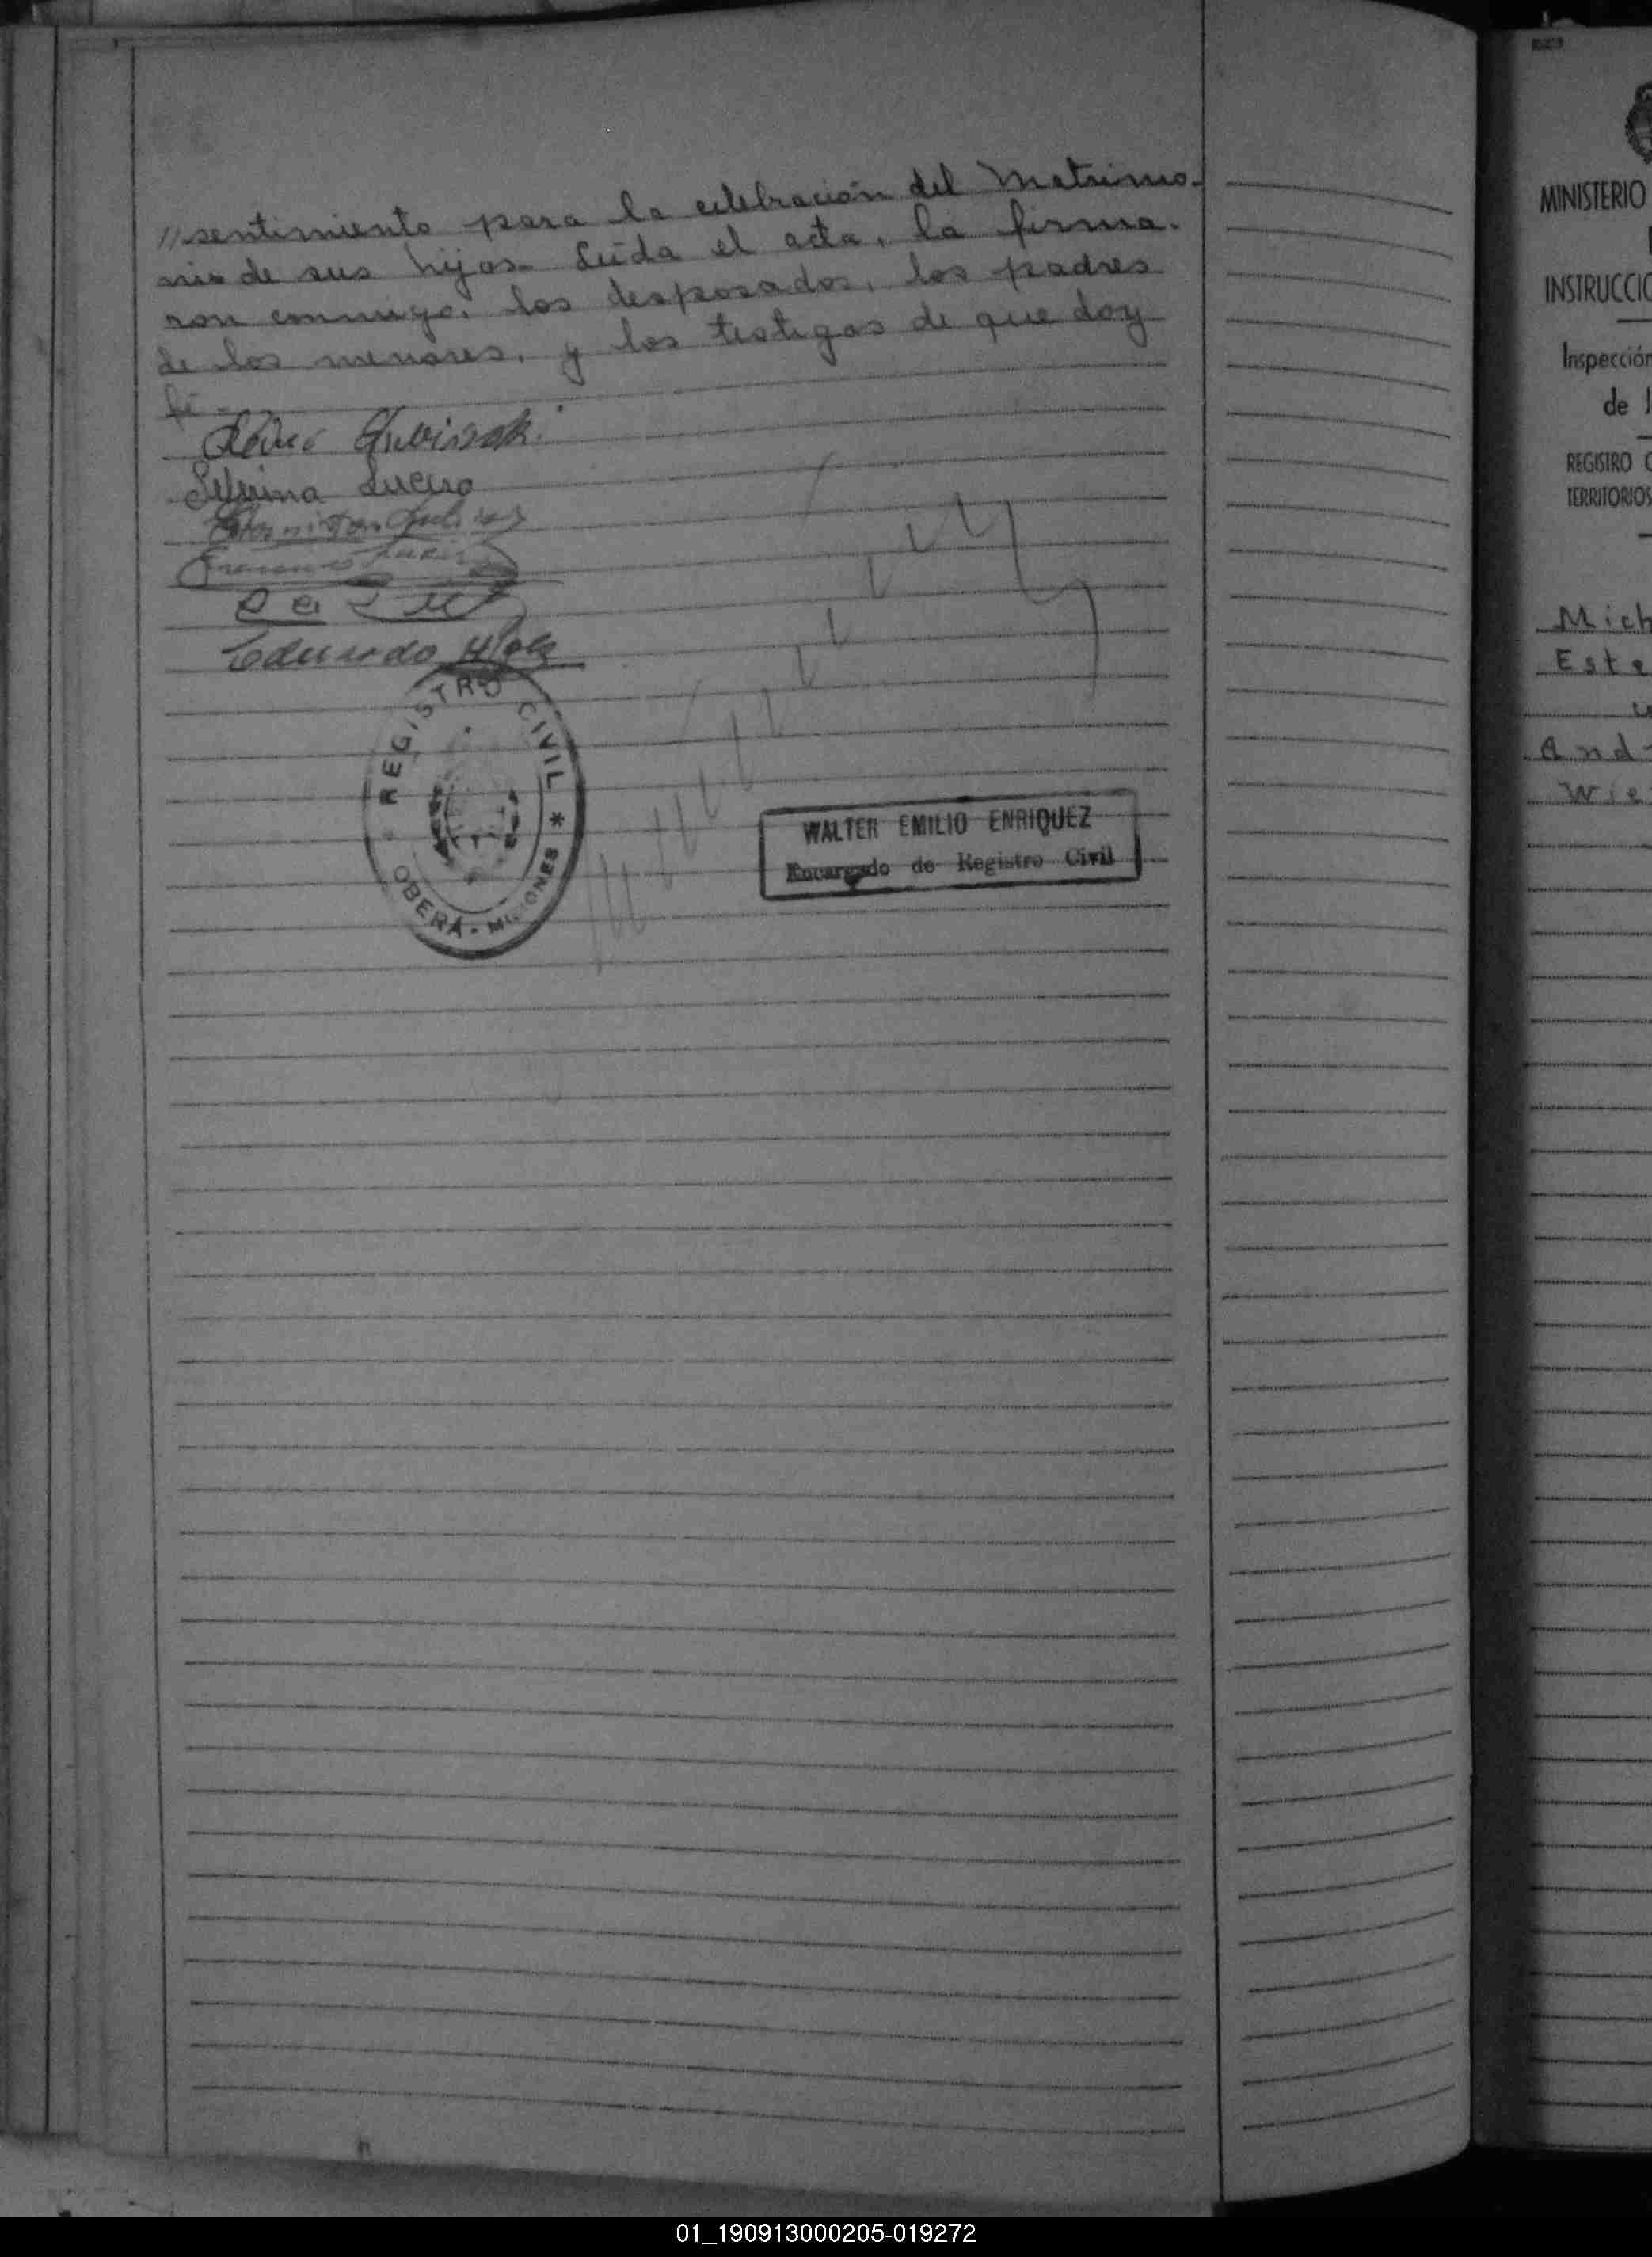 //sentimiento para la celebración del Matrimo-
nio de sus hijos. Leída el acta, la firma-
ron conmigo, los desposados, los padres
de los menores, y los testigos de que doy
fé.-
Lucero
Eduardo
REGISTRO CIVIL *
OBERÁ - MISIONES
WALTER EMILIO ENRIQUEZ
Encargado de Registro Civil
MINISTERIO
INSTRUCCIO
Inspección
de
REGISTRO
TERRITORIOS
Mich
Este
And
Wie
01_190913000205-019272